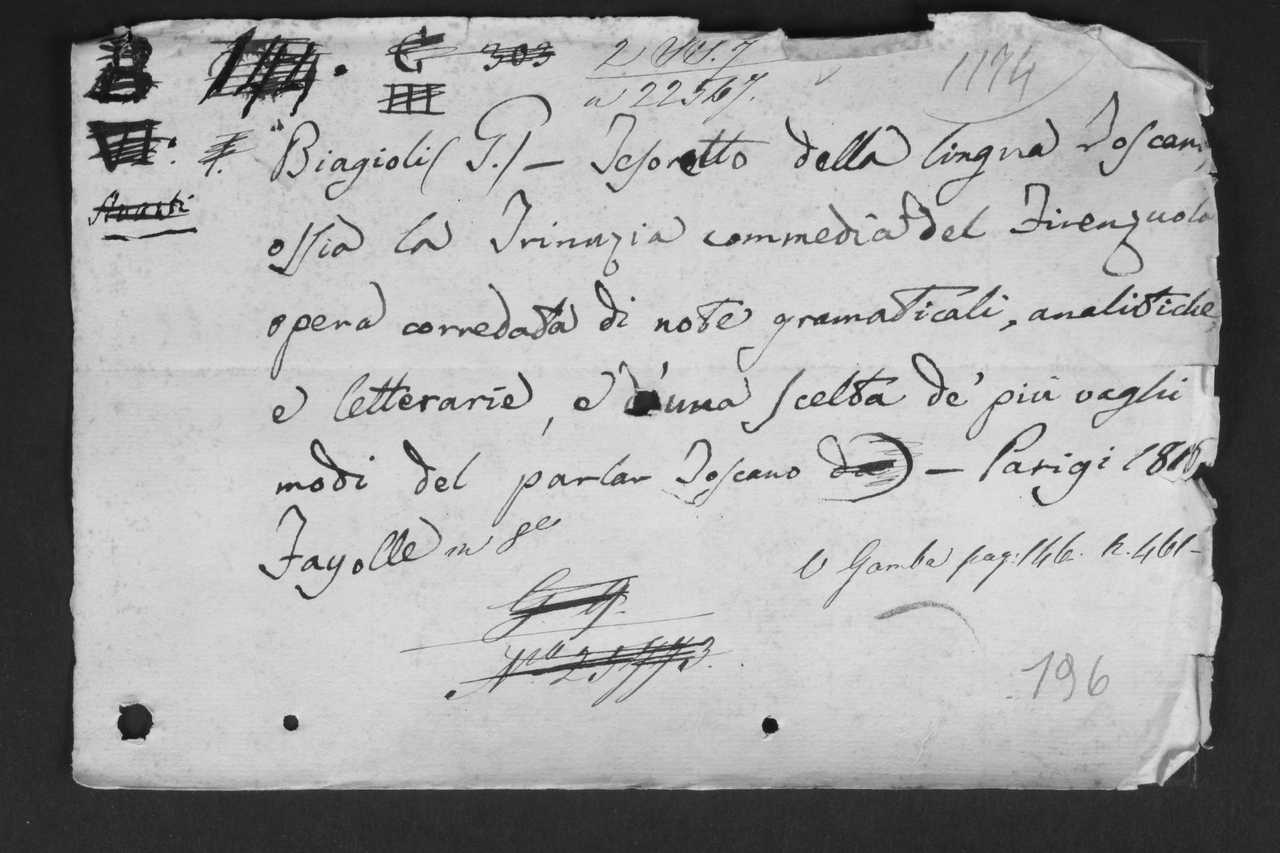 303 2 VV. 7
a 22567.
1174
"Biagioli (G.) – Tesoretto della lingua Toscana,
Avanti
ossia la Trinuzia commedia del Firenzuola
opera corredata di note gramaticali, analitiche,
e letterarie, e d'una scelta de' più vaghi
modi del parlar Toscano – Parigi 1816
Fayolle in 8º
V Gamba pag: 146. n. 461–
G. G.
196